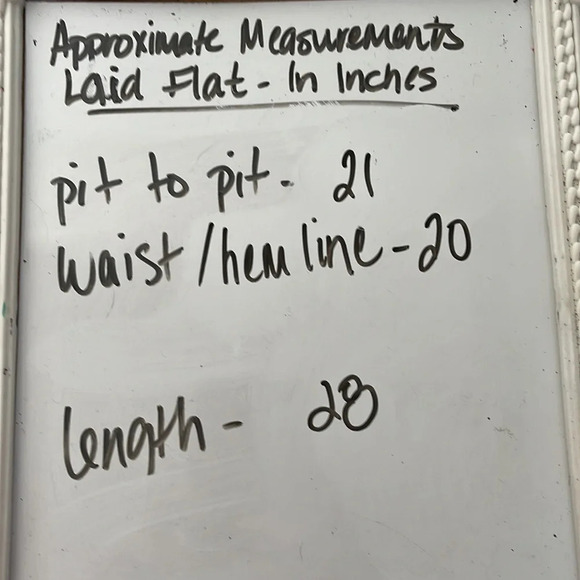 Approximate Measurements
Laid Flat - In Inches
pit to pit - 21
waist/hem line - 20
length - 28